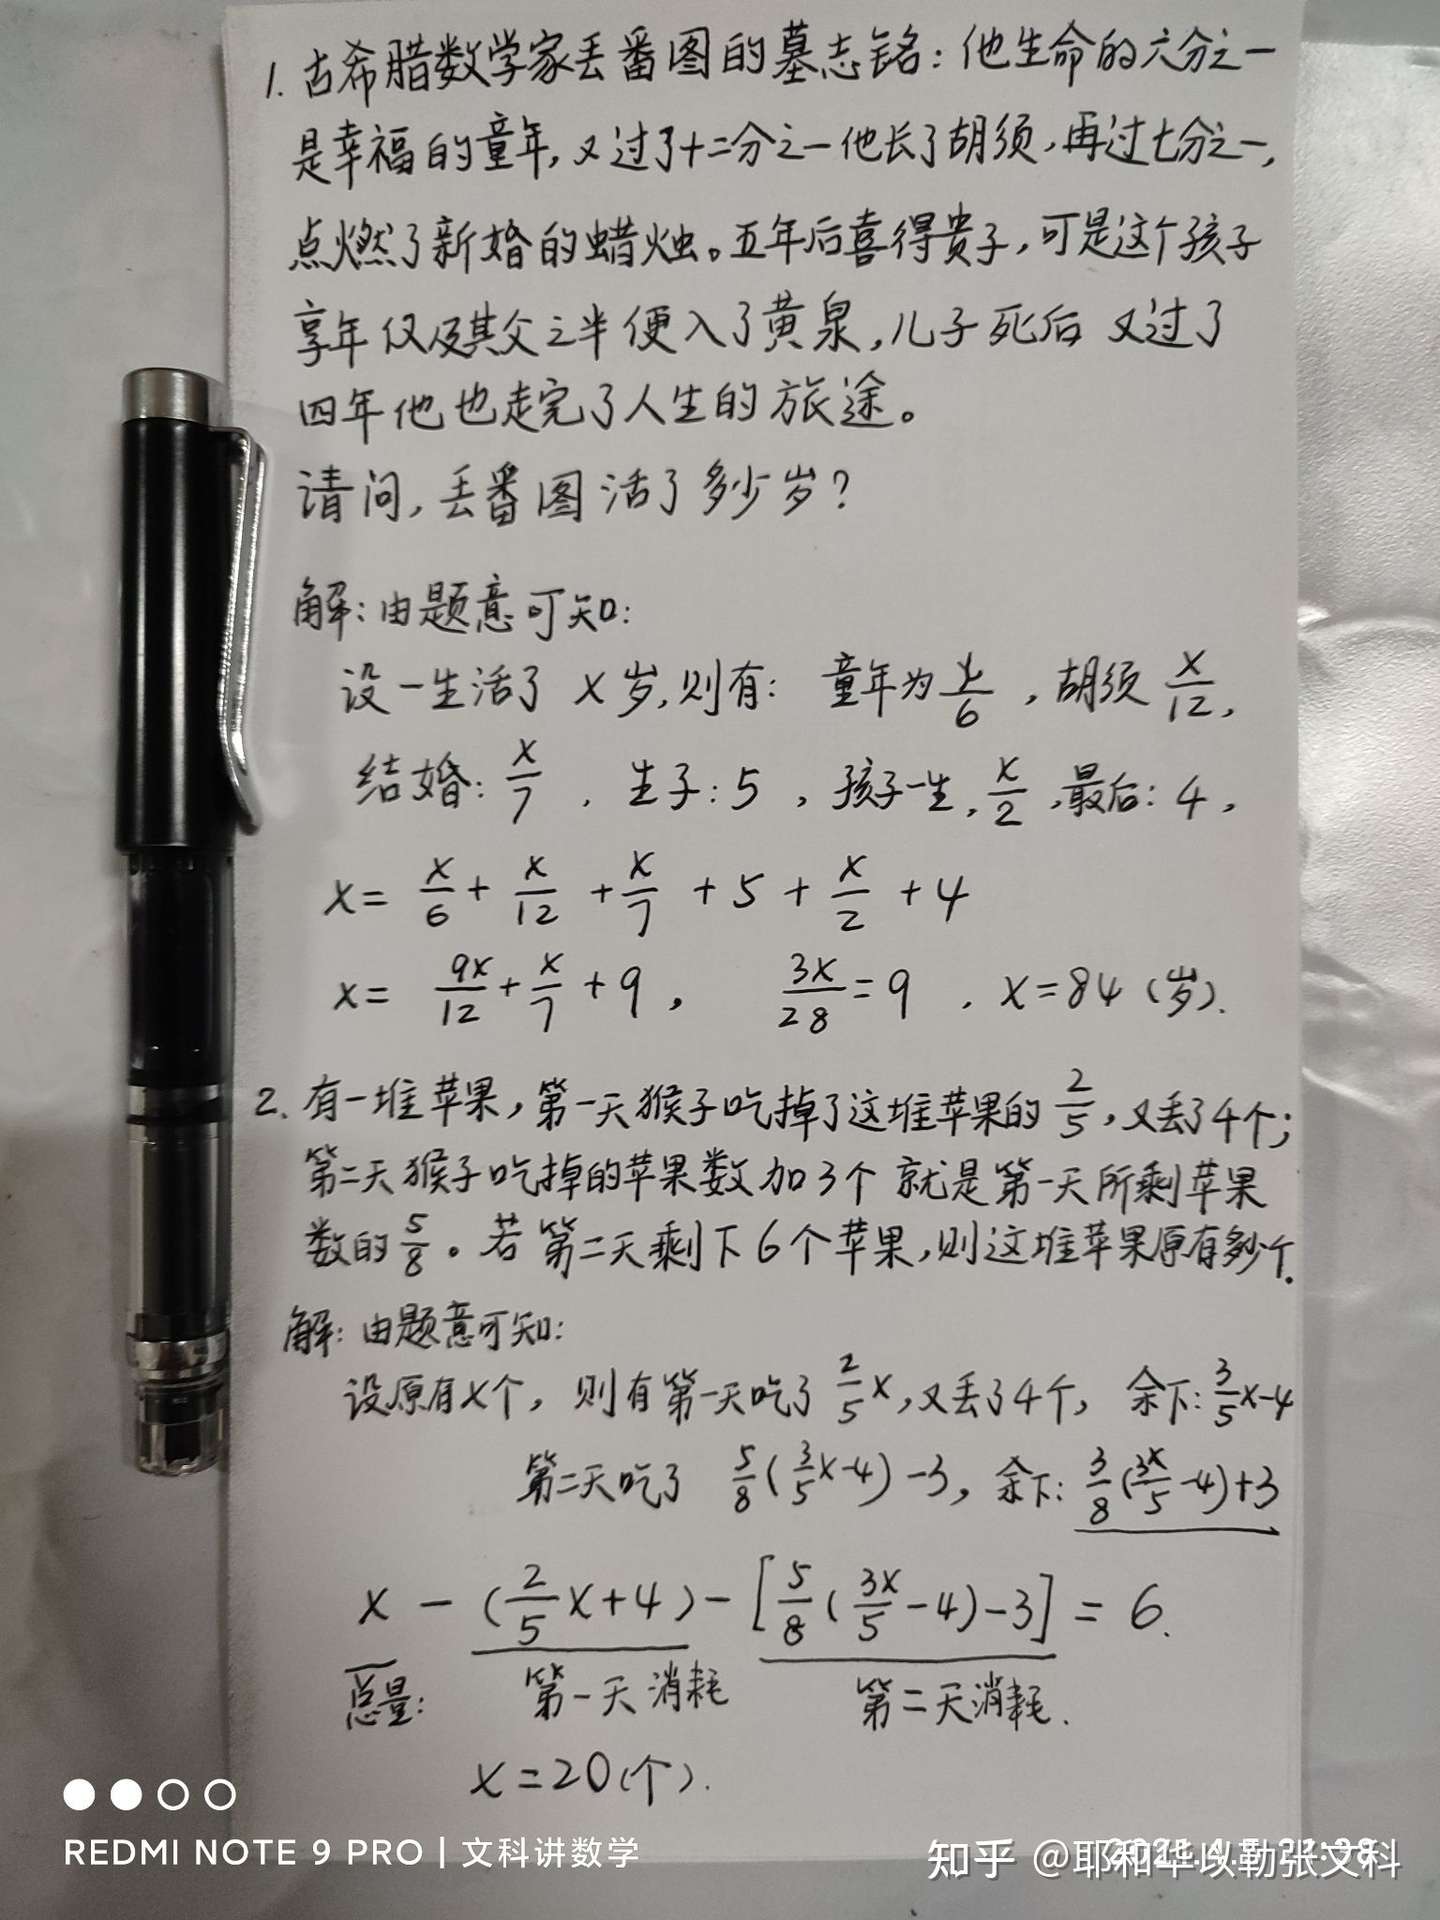 1. 古希腊数学家丢番图的墓志铭：他生命的六分之一
是幸福的童年，又过了十二分之一他长了胡须，再过七分之一，
点燃了新婚的蜡烛。五年后喜得贵子，可是这个孩子
享年仅及其父之半便入了黄泉，儿子死后又过了
四年他也走完了人生的旅途。
请问，丢番图活了多少岁？
解：由题意可知：
设一生活了 x 岁，则有： 童年为 x/6 ，胡须 x/12，
结婚：x/7 ，生子：5 ，孩子一生，x/2，最后：4，
x= x/6 + x/12 + x/7 + 5 + x/2 + 4
x= 9x/12 + x/7 + 9， 3x/28 = 9 ，x=84（岁）.
2. 有一堆苹果，第一天猴子吃掉了这堆苹果的 2/5，又丢了4个；
第二天猴子吃掉的苹果数加3个就是第一天所剩苹果
数的 5/8。若第二天剩下6个苹果，则这堆苹果原有多少个.
解：由题意可知：
设原有x个，则有第一天吃了 2/5 x，又丢了4个，余下：3/5 x-4
第二天吃了 5/8(3/5 x-4)-3，余下：3/8(3x/5-4)+3
x - (2/5 x+4) - [5/8(3x/5-4)-3] = 6.
总量： 第一天消耗 第二天消耗.
x=20(个).
REDMI NOTE 9 PRO | 文科讲数学
知乎 @耶和华以勒张文科